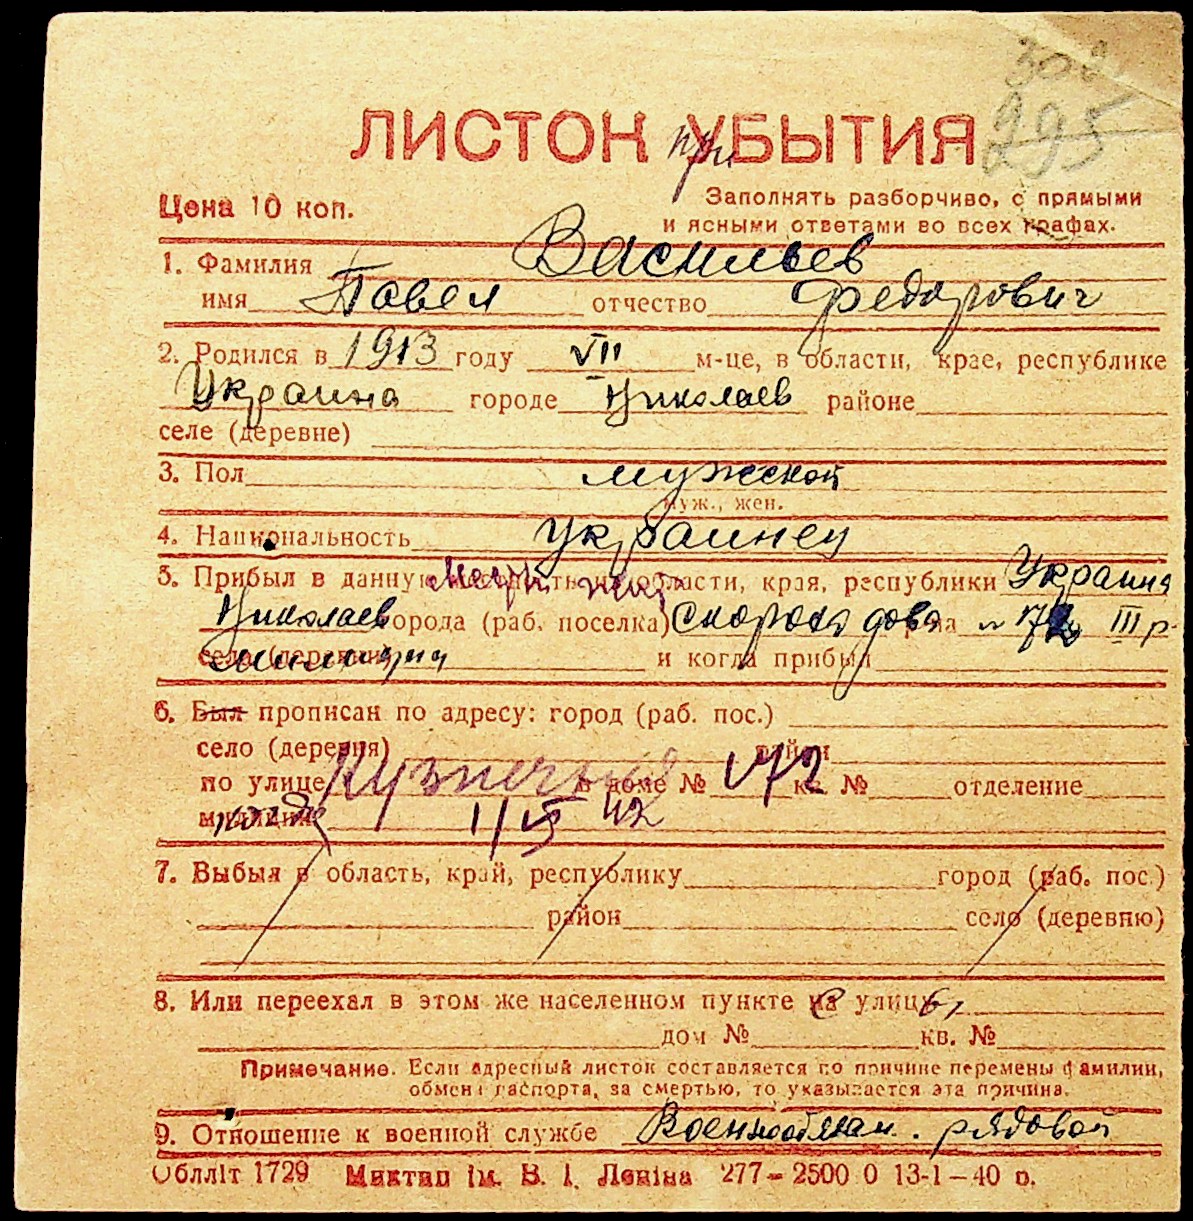 308
295
ЛИСТОК при УБЫТИЯ
Цена 10 коп.
Заполнять разборчиво, с прямыми
и ясными ответами во всех графах.
1. Фамилия Васильев
имя Павел отчество Федорович
2. Родился в 1913 году VII м-це, в области, крае, республике
Украина городе Николаев районе
селе (деревне)
3. Пол мужской
муж., жен.
4. Национальность украинец
5. Прибыл в данную местность из области, края, республики Украина
Николаев города (раб. поселка) р-на № 172 III р.
села (деревни) милиции и когда прибыл
6. Был прописан по адресу: город (раб. пос.)
село (деревня) район
по улице Кузнечная в доме № 172 кв. № отделение
милиции когда 1/VI 42
7. Выбыл в область, край, республику город (раб. пос.)
район село (деревню)
8. Или переехал в этом же населенном пункте на с улицу ы
дом № кв. №
Примечание. Если адресный листок составляется по причине перемены фамилии,
обмена паспорта, за смертью, то указывается эта причина.
9. Отношение к военной службе Военнообязан. рядовой
Облліт 1729 Миктип ім. В. І. Леніна 277–2500 0 13-1–40 р.